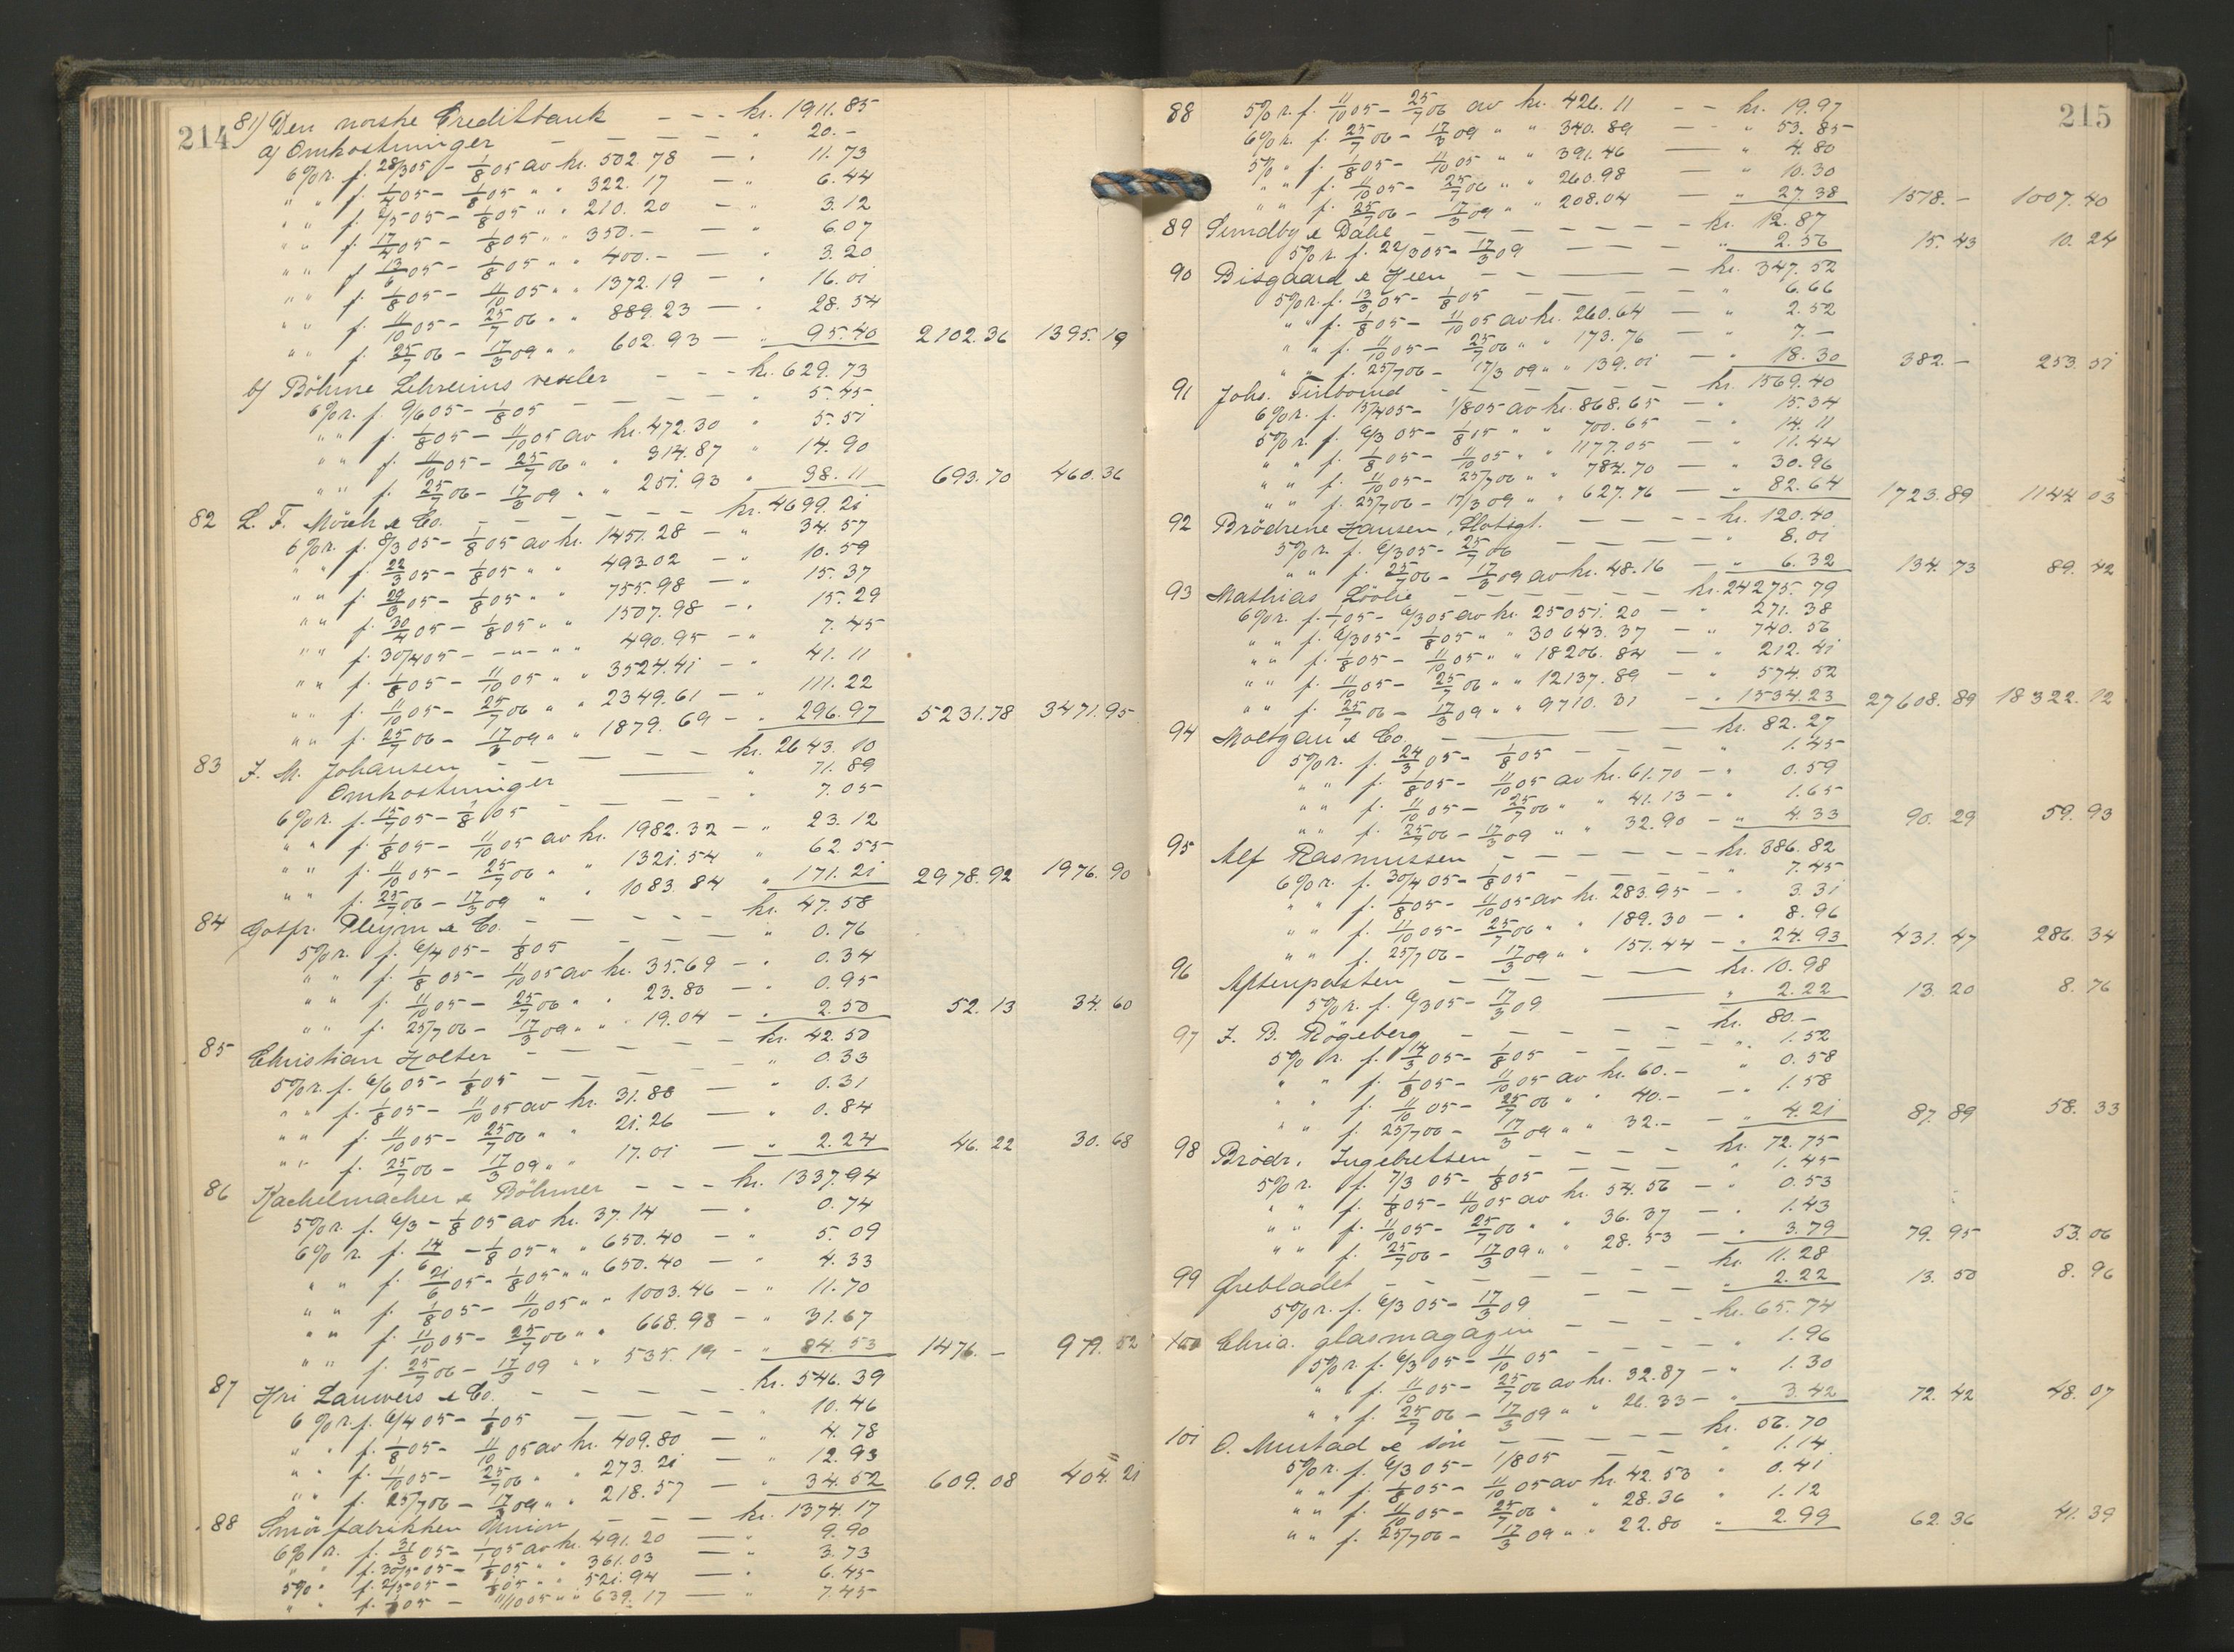 214
81) Den norske Creditbank - - - kr. 1911.85
a) Omkostninger - - - - " 20.-
6% r. f. 28/3 05 - 1/8 05 av kr. 502.78 - " 11.73
" " f. 1/4 05 - 1/8 05 " " 322.17 - " 6.44
" " f. 2/5 05 - 1/8 05 " " 210.20 - " 3.12
" " f. 17/4 05 - 1/8 05 " " 350.- - " 6.07
" " f. 13/6 05 - 1/8 05 " " 400.- - " 3.20
" " f. 1/8 05 - 11/10 05 " " 1372.19 - " 16.01
" " f. 11/10 05 - 25/7 06 " " 889.23 - " 28.54
" " f. 25/7 06 - 17/3 09 " " 602.93 - " 95.40 2102.36 1395.19
b) Böhme Lehreims veksler - - - kr. 629.73
6% r. f. 9/6 05 - 1/8 05 - - - - " 5.45
" " f. 1/8 05 - 11/10 05 av kr. 472.30 " 5.51
" " f. 11/10 05 - 25/7 06 " " 314.87 " 14.90
" " f. 25/7 06 - 17/3 09 " " 251.93 " 38.11 693.70 460.36
82 L. F. Mörch & Co. - - - - - - kr. 4699.21
6% r. f. 8/3 05 - 1/8 05 av kr. 1451.28 - " 34.57
" " f. 22/3 05 - 1/8 05 " " 493.02 - " 10.59
" " f. 29/3 05 - 1/8 05 " " 755.98 - " 15.37
" " f. 30/4 05 - 1/8 05 " " 1507.98 - " 15.29
" " f. 30/4 05 - - " - " " 490.95 - " 7.45
" " f. 1/8 05 - 11/10 05 " " 3524.41 - " 41.11
" " f. 11/10 05 - 25/7 06 " " 2349.61 - " 111.22
" " f. 25/7 06 - 17/3 09 " " 1879.69 - " 296.97 5231.78 3471.95
83 J. M. Johansen - - - - - kr. 2643.10
Omkostninger - " 71.89
6% r. f. 15/7 05 - 1/8 05 - - - - " 7.05
" " f. 1/8 05 - 11/10 05 av kr. 1982.32 - " 23.12
" " f. 11/10 05 - 25/7 06 " " 1321.54 " 62.55
" " f. 25/7 06 - 17/3 09 " " 1083.84 " 171.21 2978.92 1976.90
84 Gotfr. Pleym & Co. - - - - - kr. 47.58
5% r. f. 6/4 05 - 1/8 05 - - - " 0.76
" " f. 1/8 05 - 11/10 05 av kr. 35.69 - " 0.34
" " f. 11/10 05 - 25/7 06 " " 23.80 - " 0.95
" " f. 25/7 06 - 17/3 09 " " 19.04 - " 2.50 52.13 34.60
85 Christian Holter - - - - - kr. 42.50
5% r. f. 6/6 05 - 1/8 05 - - - - " 0.33
" " f. 1/8 05 - 11/10 05 av kr. 31.88 - " 0.31
" " f. 11/10 05 - 25/7 06 " " 21.26 - " 0.84
" " f. 25/7 06 - 17/3 09 " " 17.01 - " 2.24 46.22 30.68
86 Kachelmacher & Böhmer - - - kr. 1337.94
5% r. f. 6/3 - 1/8 05 av kr. 37.14 - " 0.74
6% r. f. 14/6 - 1/8 05 " " 650.40 - " 5.09
" " f. 21/6 05 - 1/8 05 " " 650.40 - " 4.33
" " f. 1/8 05 - 11/10 05 " " 1003.46 - " 11.70
" " f. 11/10 05 - 25/7 06 " " 668.98 - " 31.67
" " f. 25/7 06 - 17/3 09 " " 535.19 - " 84.53 1476.- 979.52
87 Hri Lauwers & Co. - - - - - kr. 546.39
6% r. f. 6/4 05 - 1/8 05 - - - - " 10.46
" " f. 1/8 05 - 11/10 05 av kr. 409.80 - " 4.78
" " f. 11/10 05 - 25/7 06 " " 273.21 - " 12.93
" " f. 25/7 06 - 17/3 09 " " 218.57 - " 34.52 609.08 404.21
88 Smörfabrikken Union - - - kr. 1374.17
6% r. f. 31/3 05 - 1/8 05 av kr. 491.20 - " 9.90
" " f. 30/5 05 - 1/8 05 " " 361.03 - " 3.73
5% " f. 2/5 05 - 1/8 05 " " 521.94 - " 6.45
" " f. 1/8 05 - 11/10 05 " " 639.17 - " 7.45
215
88 5% r. f. 11/10 05 - 25/7 06 av kr. 426.11 - - kr. 19.97
6% r. f. 25/7 06 - 17/3 09 " " 340.89 - " 53.85
5% " f. 1/8 05 - 11/10 05 " " 391.46 - " 4.80
" " f. 11/10 05 - 25/7 06 " " 260.98 - " 10.30
" " f. 25/7 06 - 17/3 09 " " 208.04 - " 27.38 1578.- 1007.40
89 Sundby & Dahl - - - - - - kr. 12.87
5% r. f. 22/3 05 - 17/3 09 - - - " 2.56 15.43 10.24
90 Bisgaard & Heen - - - - kr. 347.52
5% r. f. 13/3 05 - 1/8 05 - - - - " 6.66
" " f. 1/8 05 - 11/10 05 av kr. 260.64 - " 2.52
" " f. 11/10 05 - 25/7 06 " " 173.76 - " 7.-
" " f. 25/7 06 - 17/3 09 " " 139.01 - " 18.30 382.- 253.51
91 Johs. - - - - - kr. 1569.40
6% r. f. 15/4 05 - 1/8 05 av kr. 868.65 - " 15.34
5% r. f. 6/3 05 - 1/8 05 " " 700.65 - " 14.11
" " f. 1/8 05 - 11/10 05 " " 1177.05 - " 11.44
" " f. 11/10 05 - 25/7 06 " " 784.70 - " 30.96
" " f. 25/7 06 - 17/3 09 " " 627.76 - " 82.64 1723.89 1144.03
92 Brödrene Hansen, Slotsgt. - - - - kr. 120.40
5% r. f. 6/3 05 - 25/7 06 - - - - " 8.01
" " f. 25/7 06 - 17/3 09 av kr. 48.16 - " 6.32 134.73 89.42
93 Mathias - - - - - - kr. 24275.79
6% r. f. 1/1 05 - 6/3 05 av kr. 25051.20 - " 271.38
" " f. 6/3 05 - 1/8 05 " " 30643.37 - " 740.56
" " f. 1/8 05 - 11/10 05 " " 18206.84 - " 212.41
" " f. 11/10 05 - 25/7 06 " " 12137.89 - " 574.52
" " f. 25/7 06 - 17/3 09 " " 9710.31 - " 1534.23 27608.89 18322.12
94 Moltzau & Co. - - - - kr. 82.27
5% r. f. 24/3 05 - 1/8 05 - - - " 1.45
" " f. 1/8 05 - 11/10 05 av kr. 61.70 - " 0.59
" " f. 11/10 05 - 25/7 06 " " 41.13 - " 1.65
" " f. 25/7 06 - 17/3 09 " " 32.90 - " 4.33 90.29 59.93
95 Alf Rasmussen - - - - - - kr. 386.82
6% r. f. 30/4 05 - 1/8 05 - - - - " 7.45
" " f. 1/8 05 - 11/10 05 av kr. 283.95 - " 3.31
" " f. 11/10 05 - 25/7 06 " " 189.30 - " 8.96
" " f. 25/7 06 - 17/3 09 " " 151.44 - " 24.93 431.47 286.34
96 Aftenposten - - - - kr. 10.98
5% r. f. 6/3 05 - 17/3 09 - " 2.22 13.20 8.76
97 J. B. Rögeberg - - - - - kr. 80.-
5% r. f. 14/3 05 - 1/8 05 - - - - " 1.52
" " f. 1/8 05 - 11/10 05 av kr. 60.- " 0.58
" " f. 11/10 05 - 25/7 06 " " 40.- - " 1.58
" " f. 25/7 06 - 17/3 09 " " 32.- - " 4.21 87.89 58.33
98 Brödr. Ingebretsen - - - - kr. 72.75
5% r. f. 7/3 05 - 1/8 05 - - - " 1.45
" " f. 1/8 05 - 11/10 05 av kr. 54.56 - " 0.53
" " f. 11/10 05 - 25/7 06 " " 36.37 - " 1.43
" " f. 25/7 06 - 17/3 09 " " 28.53 - " 3.79 79.95 53.06
99 Ørebladet - - - - - - kr. 11.28
5% r. f. 6/3 05 - 17/3 09 - - - " 2.22 13.50 8.96
100 Chria. glasmagazin - - - - kr. 65.74
5% r. f. 6/3 05 - 11/10 05 - - - - " 1.96
" f. 11/10 05 - 25/7 06 av kr. 32.87 - " 1.30
" " f. 25/7 06 - 17/3 09 " " 26.33 - " 3.42 72.42 48.07
101 O. Mustad & sön - - - - - kr. 56.70
5% r. f. 6/3 05 - 1/8 05 - - " 1.14
" " f. 1/8 05 - 11/10 05 av kr. 42.53 " 0.41
" " f. 11/10 05 - 25/7 06 " " 28.36 " 1.12
" " f. 25/7 06 - 17/3 09 " " 22.80 " 2.99 62.36 41.39